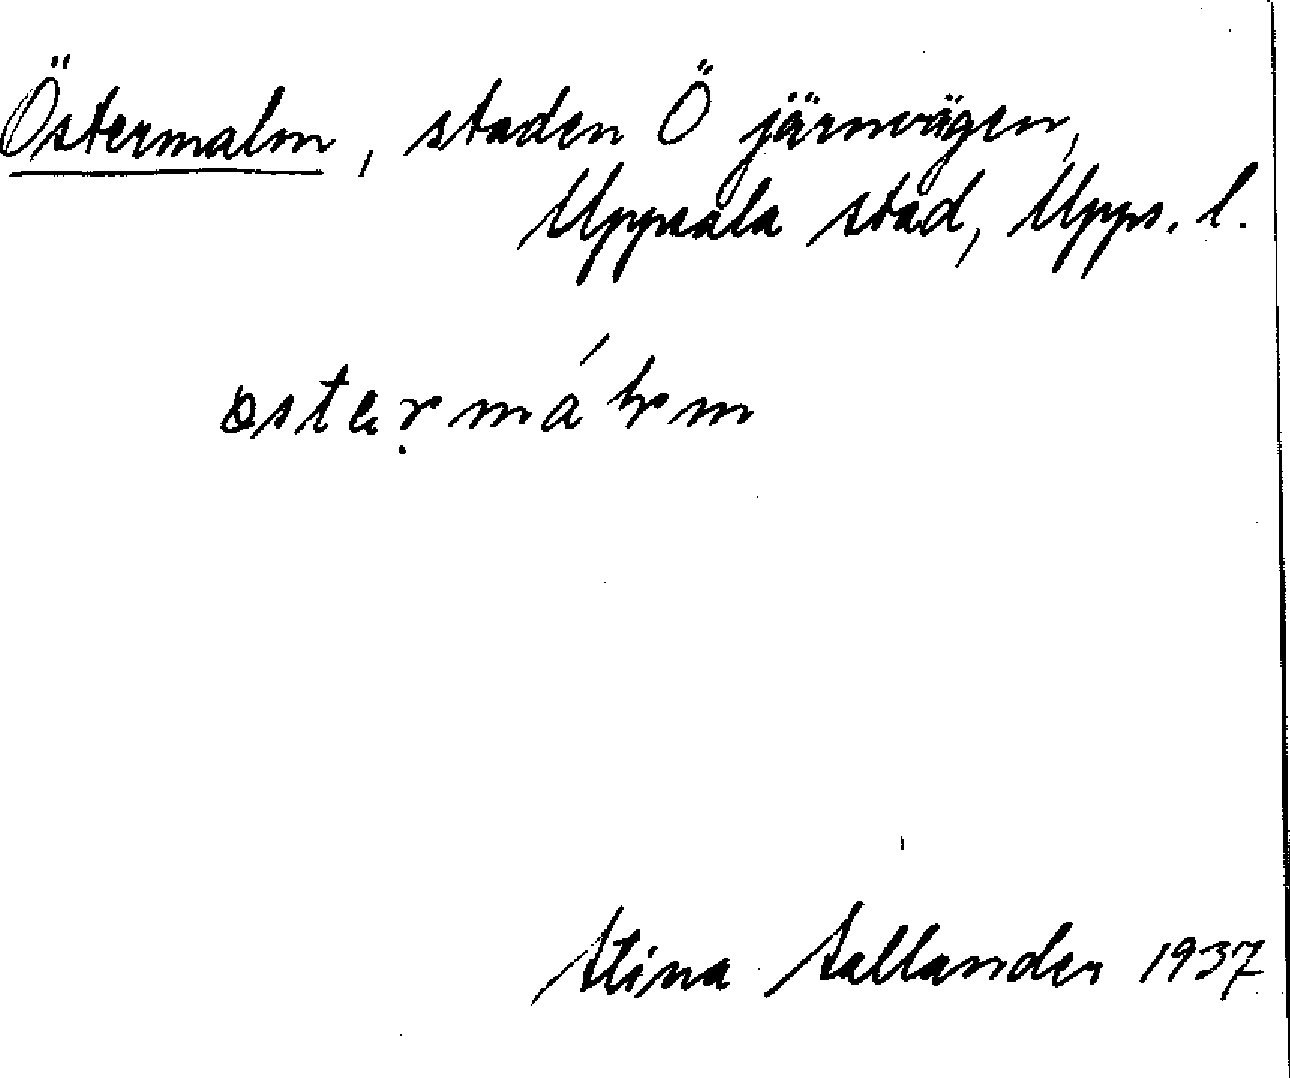 Östermalm, staden Ö järnvägen,
Uppsala stad, Upps. l.
östermálm
Stina Sallander 1937